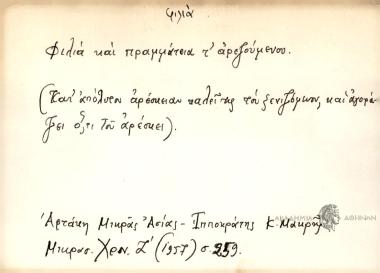 φιλιά
Φιλιά καὶ πραμμάτεια τ' ἀρεζούμενου.
(Κατ' ἀπόλυτον ἀρέσκειαν παλεῖ τις τὸν ξενιζόμενον, καὶ ἀγορά-
ζει ὅ,τι τοῦ ἀρέσκει).
Ἀρτάκη Μικρᾶς Ἀσίας - Ἱπποκράτης Κ. Μακρῆς
Μικρασ. Χρον. Ζ' (1957) σ. 259.
ΑΚΑΔΗΜΙΑ ΑΘΗΝΩΝ